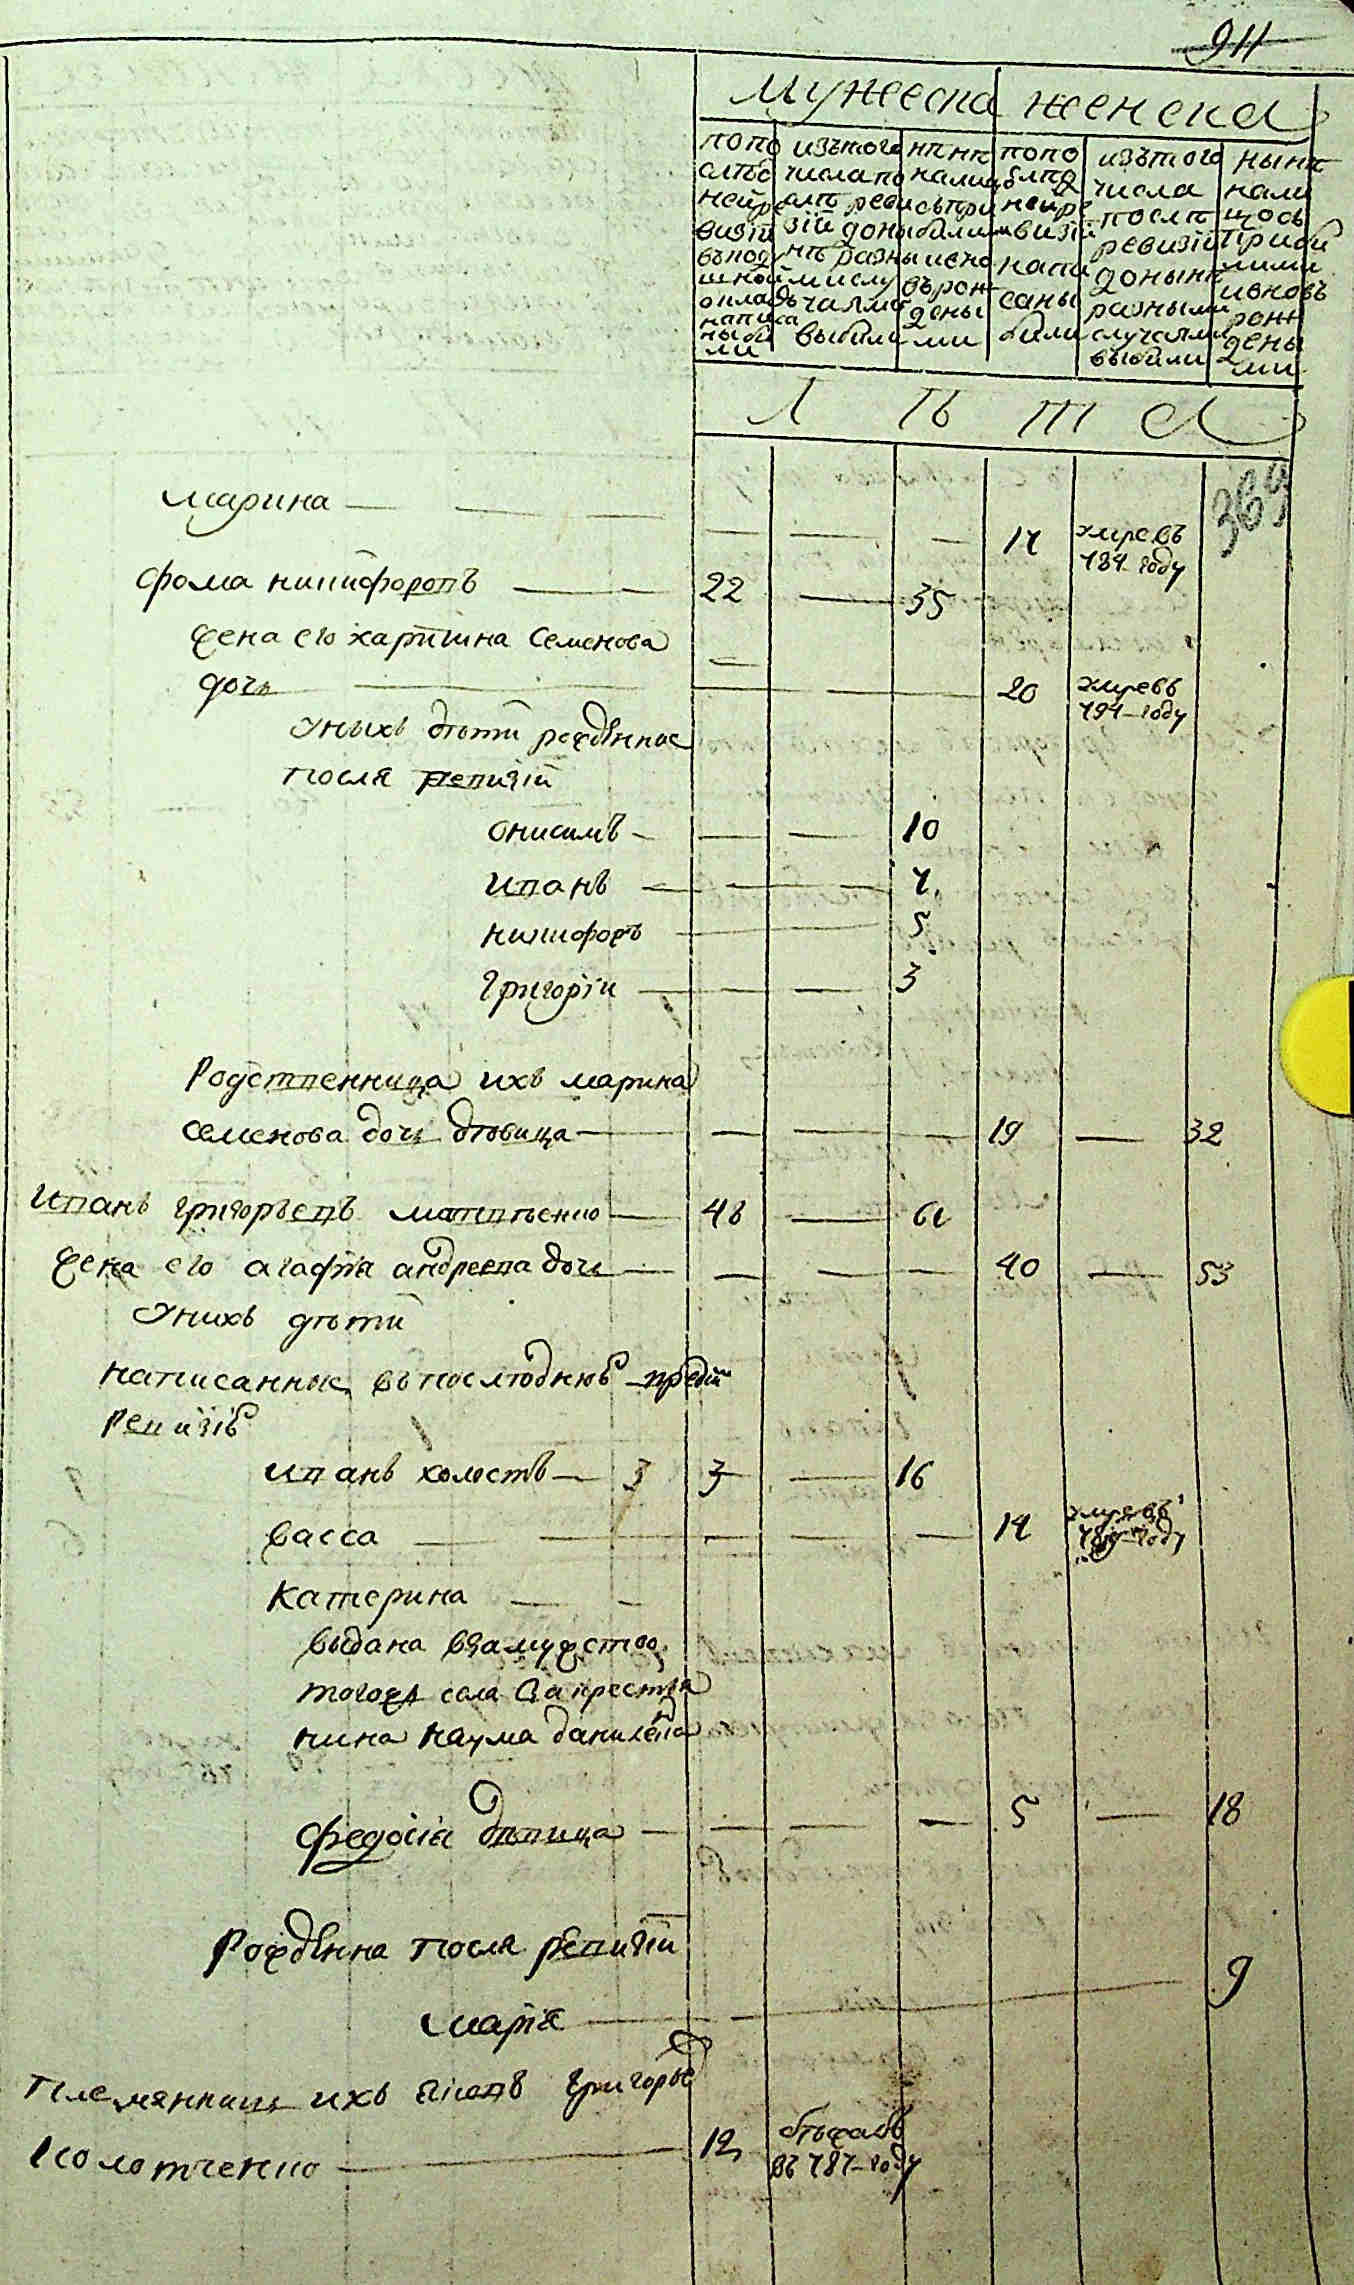 911
мужеска женска
попо
слѣд
нейре
визіи
въ поду
шной
окладъ
написа
ны бы
ли
изъ того
числа по
слѣ реви
зіи доны
нѣ разны
ми слу
чаями
выбыли
нынѣ
налицо
съ при
былим
и вно
въ рож
дены
ми
попо
слѣд
нейре
визіи
напи
саны
были
изъ того
числа
послѣ
ревизіи
донынѣ
разными
случаями
выбыли
нынѣ
нали
цо съ
прибы
лими
и вновь
рож
дены
ми
Л Ѣ Т А
марина — — — 14 умре въ
784 году
Фома никифоровъ — 22 — 35
жена его харитина Семенова
дочь — 20 умре въ
794 году
У ныхъ дѣти рожденные
после ревизіи
онисимъ — 10
иванъ — 7
никифоръ — 5
григоріи — 3
Родственница ихъ марина
семенова дочь дѣвица — 19 — 32
Иванъ григорьевъ матвѣенко — 48 — 61
жена его агафія андреева дочь — 40 — 53
У нихъ дѣти
написанные въ последнюю пред
ревизію
иванъ холостъ — 3 3 — 16
васса — 14 умре въ
789 году
катерина — —
выдана взамужство
тогожъ села за крестья
нина наума данилева
Федосіа дѣвица — 5 — 18
Рожденна после ревизіи
маріа — 9
племянникъ ихъ григорьев
колотченко — 12 бѣжалъ
въ 787 году